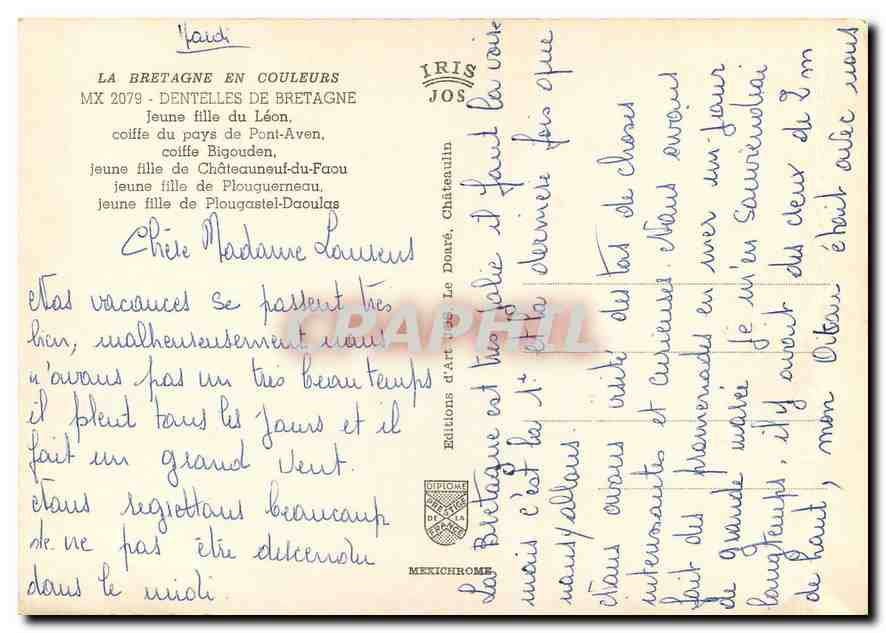 Mardi
LA BRETAGNE EN COULEURS
MX 2079 - DENTELLES DE BRETAGNE
Jeune fille du Léon,
coiffe du pays de Pont-Aven,
coiffe Bigouden,
jeune fille de Châteauneuf-du-Faou
jeune fille de Plouguerneau,
jeune fille de Plougastel-Daoulas
IRIS
JOS
Chère Madame Laurens
Nos vacances se passent très
bien, malheureusement nous
n'avons pas un très beau temps
il pleut tous les jours et il
fait un grand vent.
Nous regrettons beaucoup
de ne pas être descendu
dans le midi.
Editions d'Art JOS Le Doaré, Châteaulin
DIPLOME
PRESTIGE
DE LA
FRANCE
MEXICHROME
CPAPHIL
La Bretagne est très jolie il faut la voire
mais c'est la 1e et la dernière fois que
nous y allons.
Nous avons visité des tas de choses
interessantes et curieuses Nous avons
fait des promenades en mer un jour
de grande marée je m'en souviendrai
longtemps, il y avait des creux de 2 m
de haut, mon était avec nous